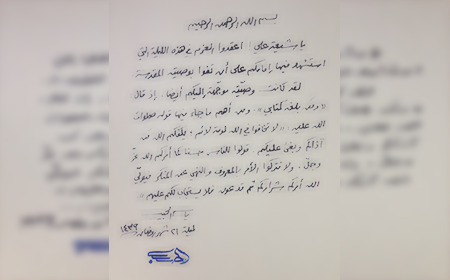 بسم الله الرحمن الرحيم
يا شيعة علي! اعقدوا العزم في هذه الليلة التي
استشهد فيها إمامكم على أن تفوا بوصيته المقدسة
لقد كانت وصيته موجّهة إليكم أيضا. إذ قال
«ومن بلغه كتابي». ومن أهم ما جاء فيها قوله صلوات
الله عليه: «لا تخافوا في الله لومة لائم، يكفكم الله من
آذاكم وبغى عليكم. قولوا للناس حسنا كما أمركم الله عزّ
وجلّ. ولا تتركوا الأمر بالمعروف والنهي عن المنكر فيولّي
الله أمركم شراركم ثم تدعون فلا يستجاب لكم عليهم»
ليلة ٢١ شهر رمضان